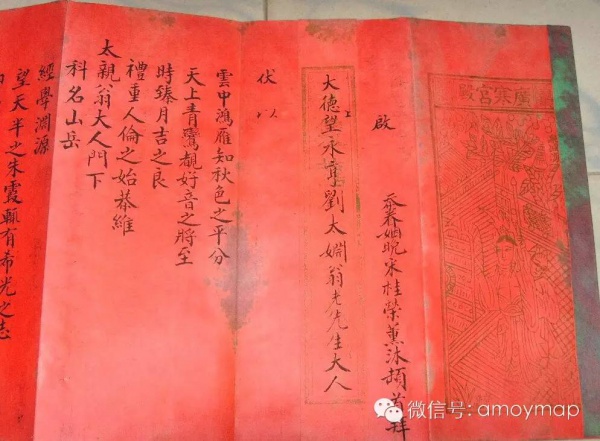 廣寒宮殿
忝眷姻晚宋桂榮薰沐頓首拜
啟
大德望永 劉太婣翁老先生大人
伏以
雲中鴻雁知秋色之平分
天上青鸞 好音之將至
時臻月吉之良
禮重人倫之始恭維
太親翁大人門下
科名山岳
經學淵源
望天半之朱霞 有希光之志
微信号: amoymap